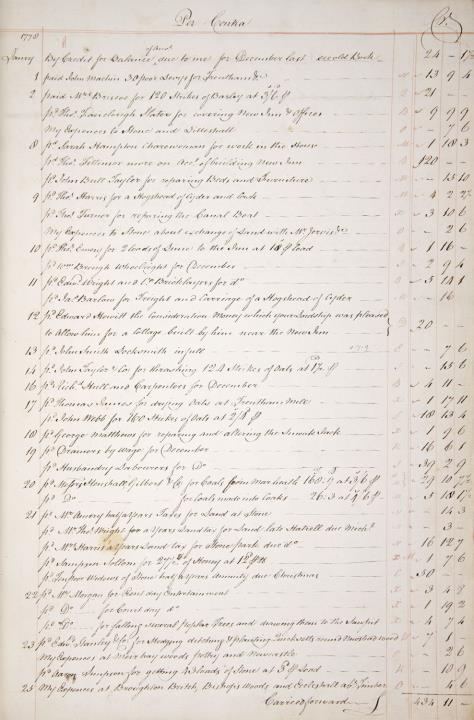 Per Contra
1778
Janry By Credit for Balance due to me for December last 24 - 1½
1 paid John Machin 30 poor Levys for Trentham &c 13 9 4
2 paid Mrs Briscoe for 120 Strikes of Barley at 3/6 21 -
pd Thos for covering New Inn & Offices 9 9 9
My Expences to Stone and Lilleshall 7 6
8 pd Sarah Hampton Charewoman for work in the House 1 18 3
pd Thos Fillimor more on Acct of building New Inn 120 -
pd John Bull Taylor for reparing Beds and Furneture 15 10
9 pd Thos Harris for a Hogshead of Cyder and Cask 4 2
pd Turner for reparing the Canal Boat 3 10 6
My Expences to Stone about exchange of Land with Mr Jervis &c 2 6
10 pd Thos Emery for 2 loads of Lime to the Inn at 18 load 1 16 -
pd Wm Brough Wheelwright for December 2 9 4
11 pd Edwd Wright and Co Bricklayers for do 5 14 1
pd Jas Barlow for Freight and Carriage of a Hogshead of Cyder 16 -
12 pd Edward Hewitt the Consideration Money which your Lordship was pleased
to Allow him for a Cottage built by him near the New Inn 20 - -
13 pd John Smith Locksmith in full 7 6
14 pd John Taylor & Co for thrashing 124 Strikes of Oats at 15 6
16 pd Richd Hull and Carpenters for December 4 11 -
17 pd Thomas for drying Oats at Trentham Mill 1 17 11
pd John Webb for 160 Strikes of Oats at 2/4 18 13 4
18 pd George Matthews for reparing and altering the Smoke Jack 1 9 6
19 pd Drainers by Wage for December 16 6 1
pd Husbandry Labourers for Do 39 2 9
20 pd Messrs Henshall Gilbert & Co for Coals from Meirheath 168.9 at 3/6 29 10
pd Do for Coals made into Coaks 26.3 at 4/6 5 18
21 pd Mr Amery half a Years Taxes for Land at Stone 14 3
pd Mr Thos Wright for a Years Land tax for Land late Hatrell due Michs 3 -
pd Mr Harris a Years Land tax for Stone park due do 16 12 7
pd Sampson Tollom for 27½ lb of Honey at 1 7 6
pd Widows of Stone half a Years Annuity due Christmas 30 -
22 pd Mr Morgan for Rent day Entertainment 3 4 8
pd Do for Court day do 1 19 2
pd Do for falling several Poplar Trees and drawing them to the Sawpit 4 7 4
23 pd Edwd Stanley & Co for Hedging ditching & planting Quicksetts round 7 1 -
My Expences at Meir hay woods and Newcastle 2 6
pd Aaron Simpson for getting 43 loads of Stone at 3d load 10 9
25 My Expences at Broughton Bishops Woods and Eccleshall abt Timber 4 6
Carried forward 434 11 -